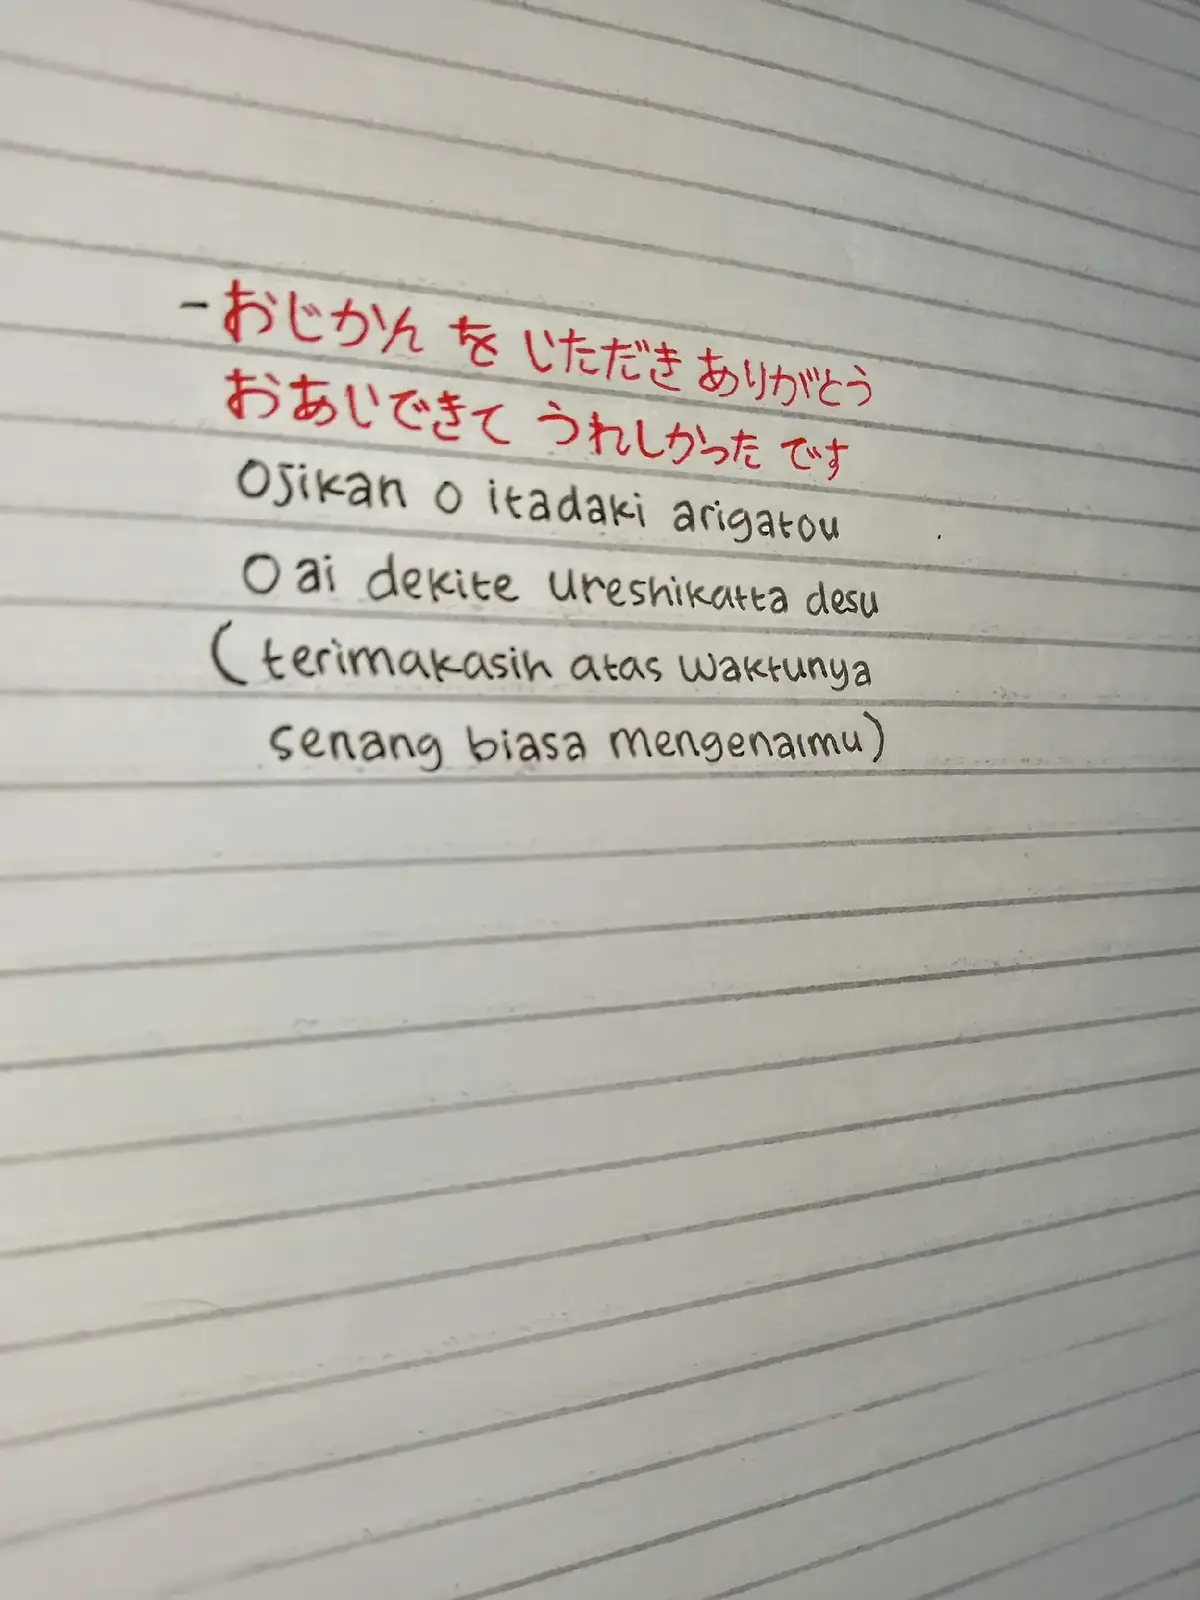 - おじかん を いただき ありがとう
おあいできて うれしかった です
Ojikan o itadaki arigatou
O ai dekite ureshikatta desu
(terimakasih atas waktunya
senang biasa mengenaimu)